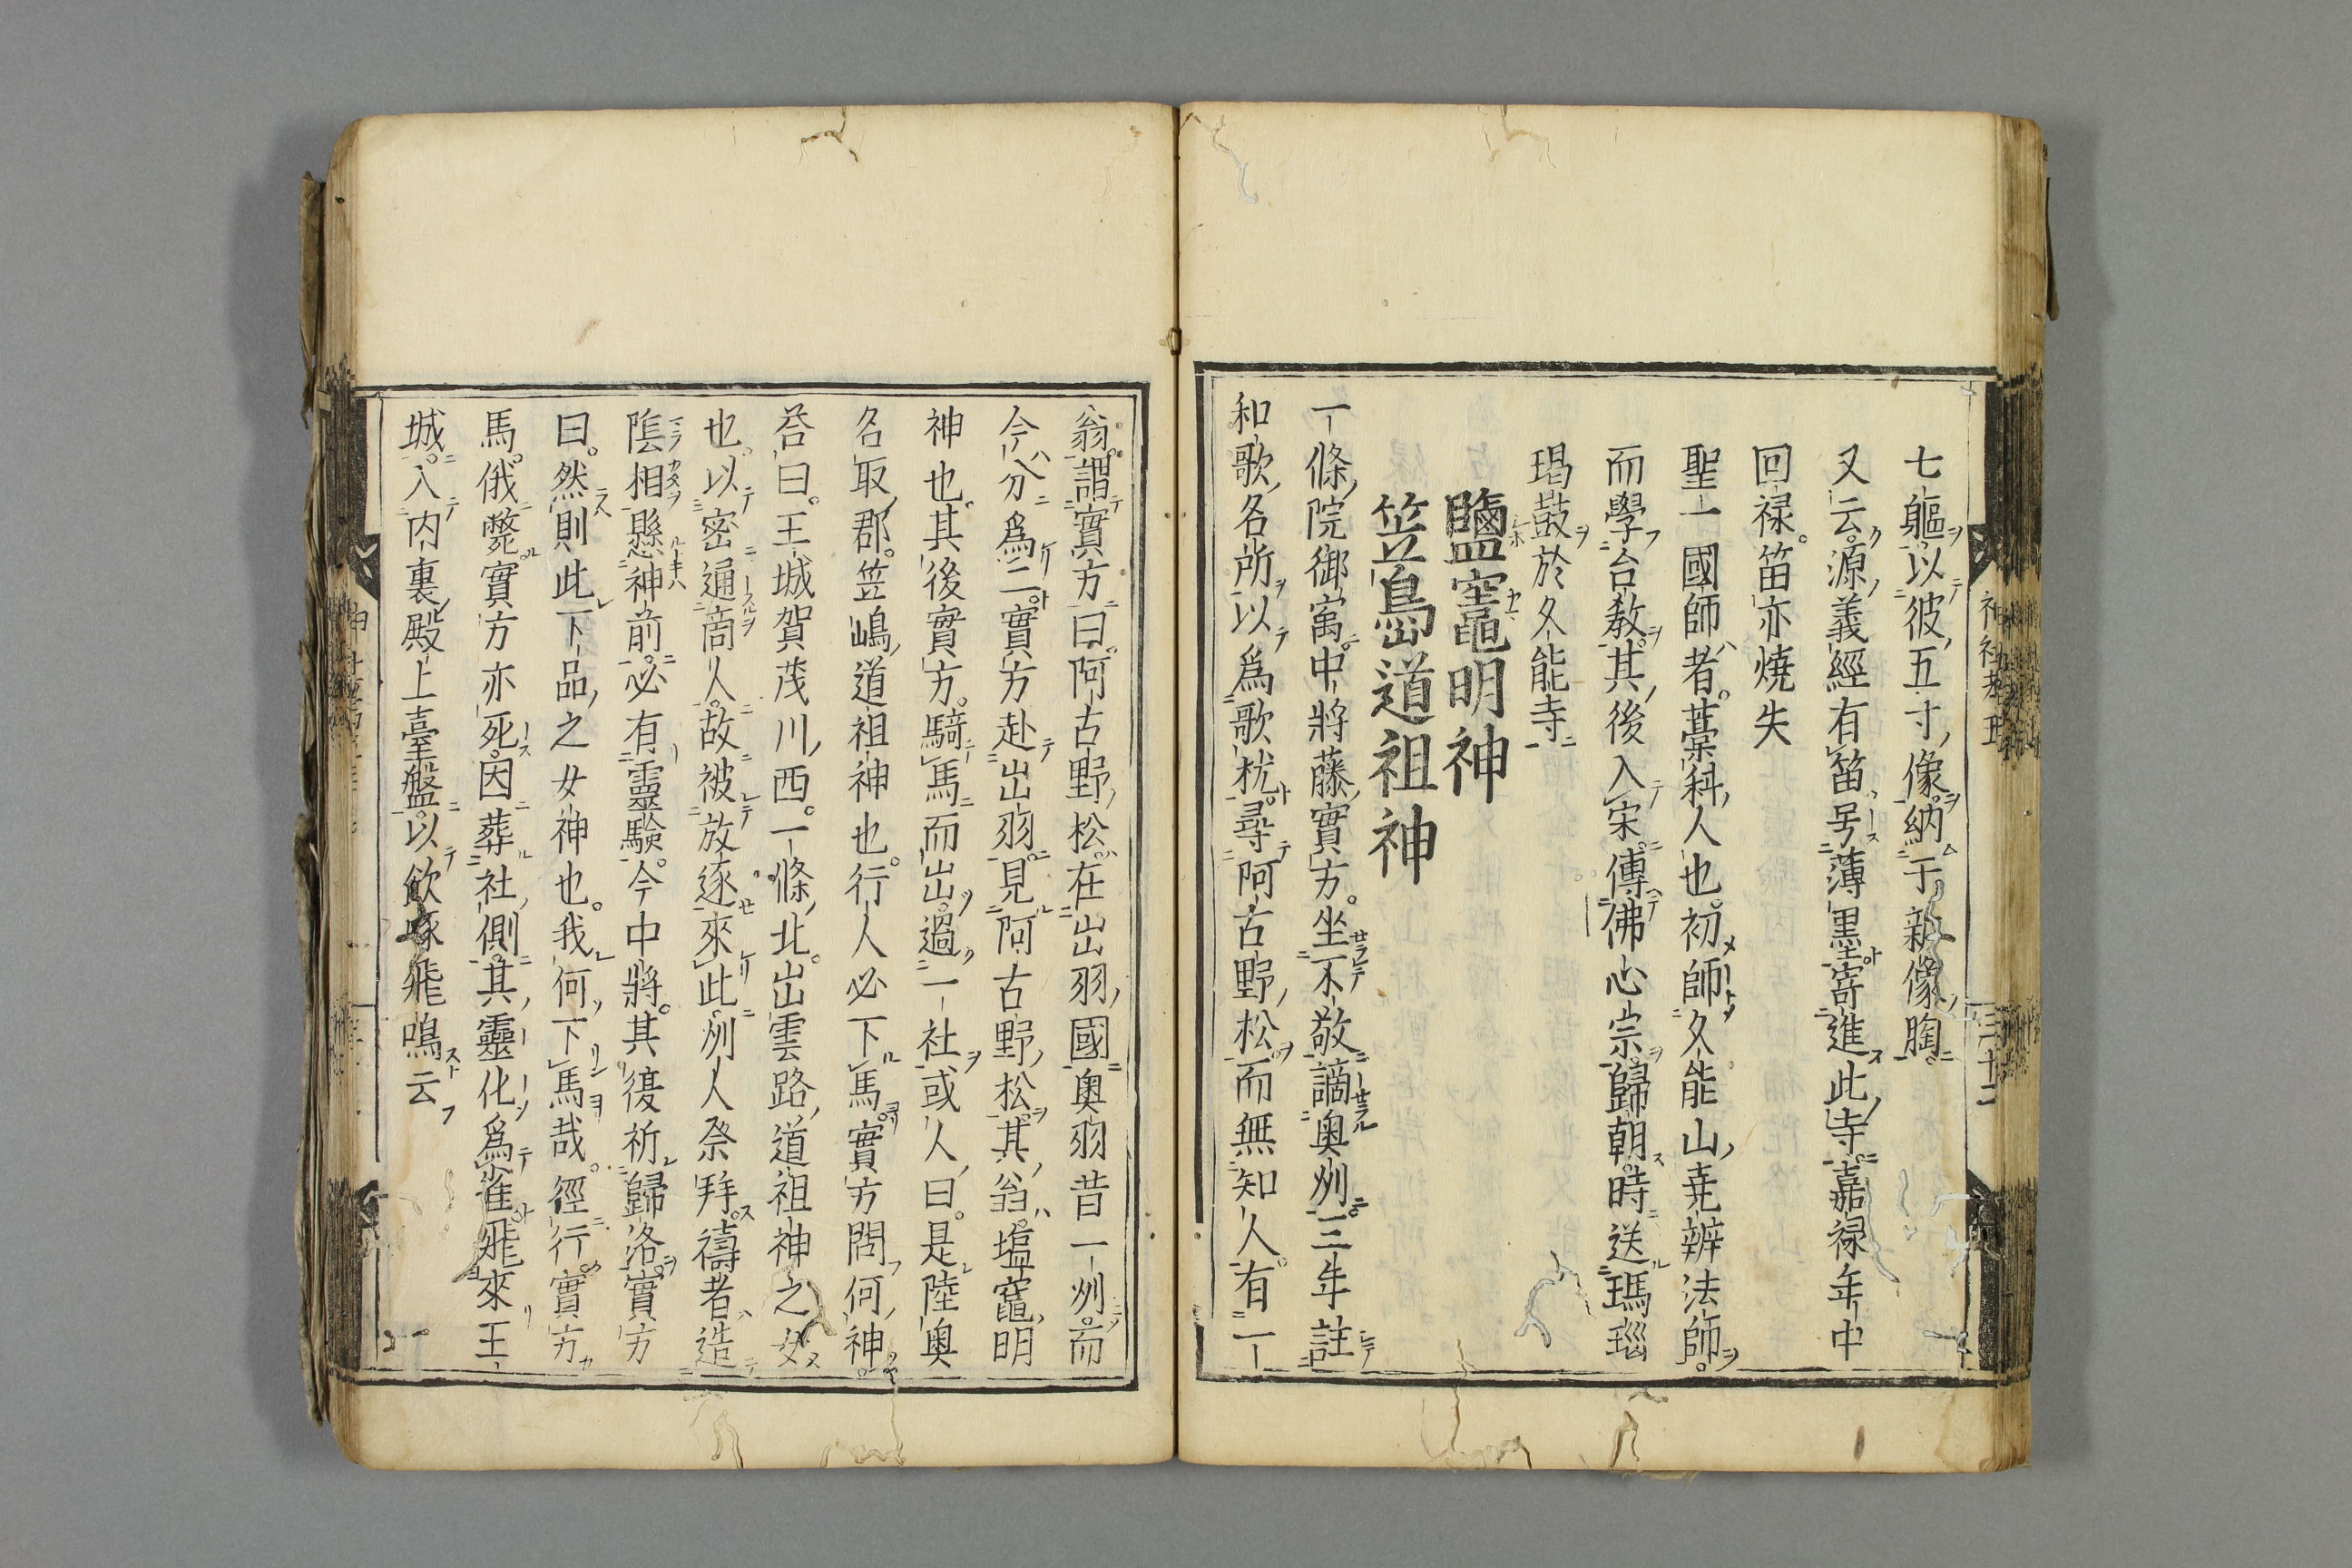 七軀以彼五寸像納于新像胸
又云源義經有笛号薄墨寄進此寺嘉禄年中
回禄笛亦焼失
聖一國師者藁科人也初師久能山尭辨法師
而學台教其後入宋傳佛心宗歸朝時送瑪瑙
羯鼓於久能寺
鹽竈明神
笠嶌道祖神
一條院御寓中將藤實方坐不敬謫奥刕三年註
和歌名所以爲歌枕尋阿古野松而無知人有一
翁謂實方曰阿古野松在出羽國奥羽昔一刕而
今分爲二實方赴出羽見阿古野松其翁塩竈明
神也其後實方騎馬而出過一社或人曰是陸奥
名取郡笠嶋道祖神也行人必下馬實方問何神
答曰王城賀茂川西一條北出雲路道祖神之女
也以密通商人故被放逐來此刕人祭拜禱者造
陰相懸神前必有靈験今中將其復祈歸洛實方
曰然則此下品之女神也我何下馬哉徑行實方
馬俄斃實方亦死因葬社側其靈化爲雀飛來王
城入内裏殿上臺盤以飲啄飛鳴云
神社考
三十二